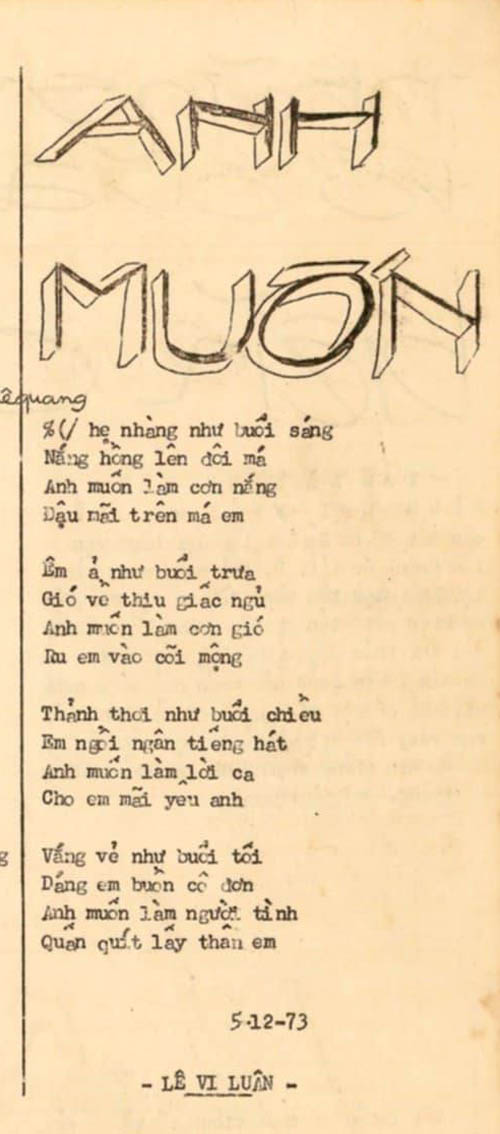 ANH
MUỐN
quang
%(/ hẹ nhàng như buổi sáng
Nắng hồng lên đôi má
Anh muốn làm cơn nắng
Đậu mãi trên má em
Êm ả như buổi trưa
Gió về thiu giấc ngủ
Anh muốn làm cơn gió
Ru em vào cõi mộng
Thảnh thơi như buổi chiều
Em ngồi ngân tiếng hát
Anh muốn làm lời ca
Cho em mãi yêu anh
Vắng vẻ như buổi tối
Dáng em buồn cô đơn
Anh muốn làm người tình
Quấn quít lấy thân em
5-12-73
- LÊ VI LUÂN -